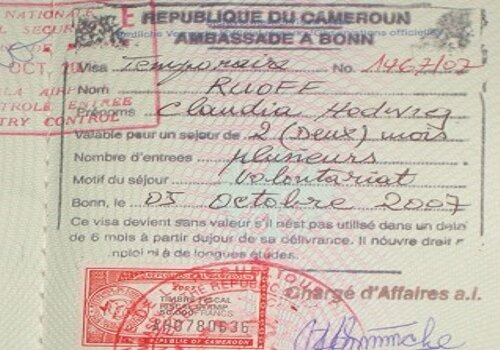 NATIONALE
L SECUR
OCT. 20
LA AIRP
TROLE ENTREE
TRY CONTROL
REPUBLIQUE DU CAMEROUN
AMBASSADE A BONN
Visa Temporaire No. 1467/07
Nom RUOFF
Claudia Hedwig
Valable pour un sejour de 2 (Deux) mois
Nombre d'entrees plusieurs
Motif du séjour Volontariat
Bonn, le 03 Octobre 2007
Ce visa devient sans valeur s'il n'est pas utilisé dans un délai
de 6 mois à partir du jour de sa délivrance. Il n'ouvre droit n
mploi ni à de longues études.
Chargé d'Affaires a.i.
2007
TIMBRE FISCAL
FISCAL STAMP
FRANCS
A00780636
REPUBLIC OF CAMEROON